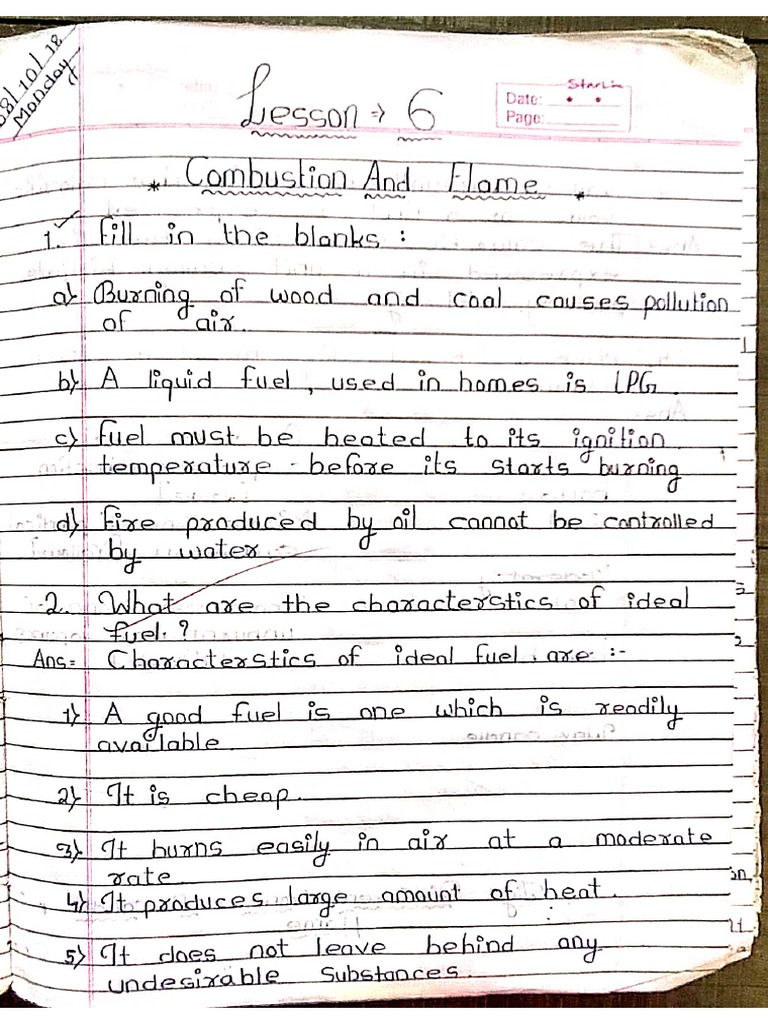 08/10/18
Monday
Starlin
Date:
Page:
Lesson → 6
* Combustion And Flame *
1. Fill in the blanks :
a) Burning of wood and coal causes pollution
of air.
b) A liquid fuel, used in homes is LPG.
c) Fuel must be heated to its ignition
temperature before its starts burning
d) Fire produced by oil cannot be controlled
by water.
2. What are the characterstics of ideal
fuel.?
Ans= Characterstics of ideal fuel are :-
1) A good fuel is one which is readily
available.
2) It is cheap.
3) It burns easily in air at a moderate
rate
4) It produces large amount of heat.
5) It does not leave behind any
undesirable Substances.